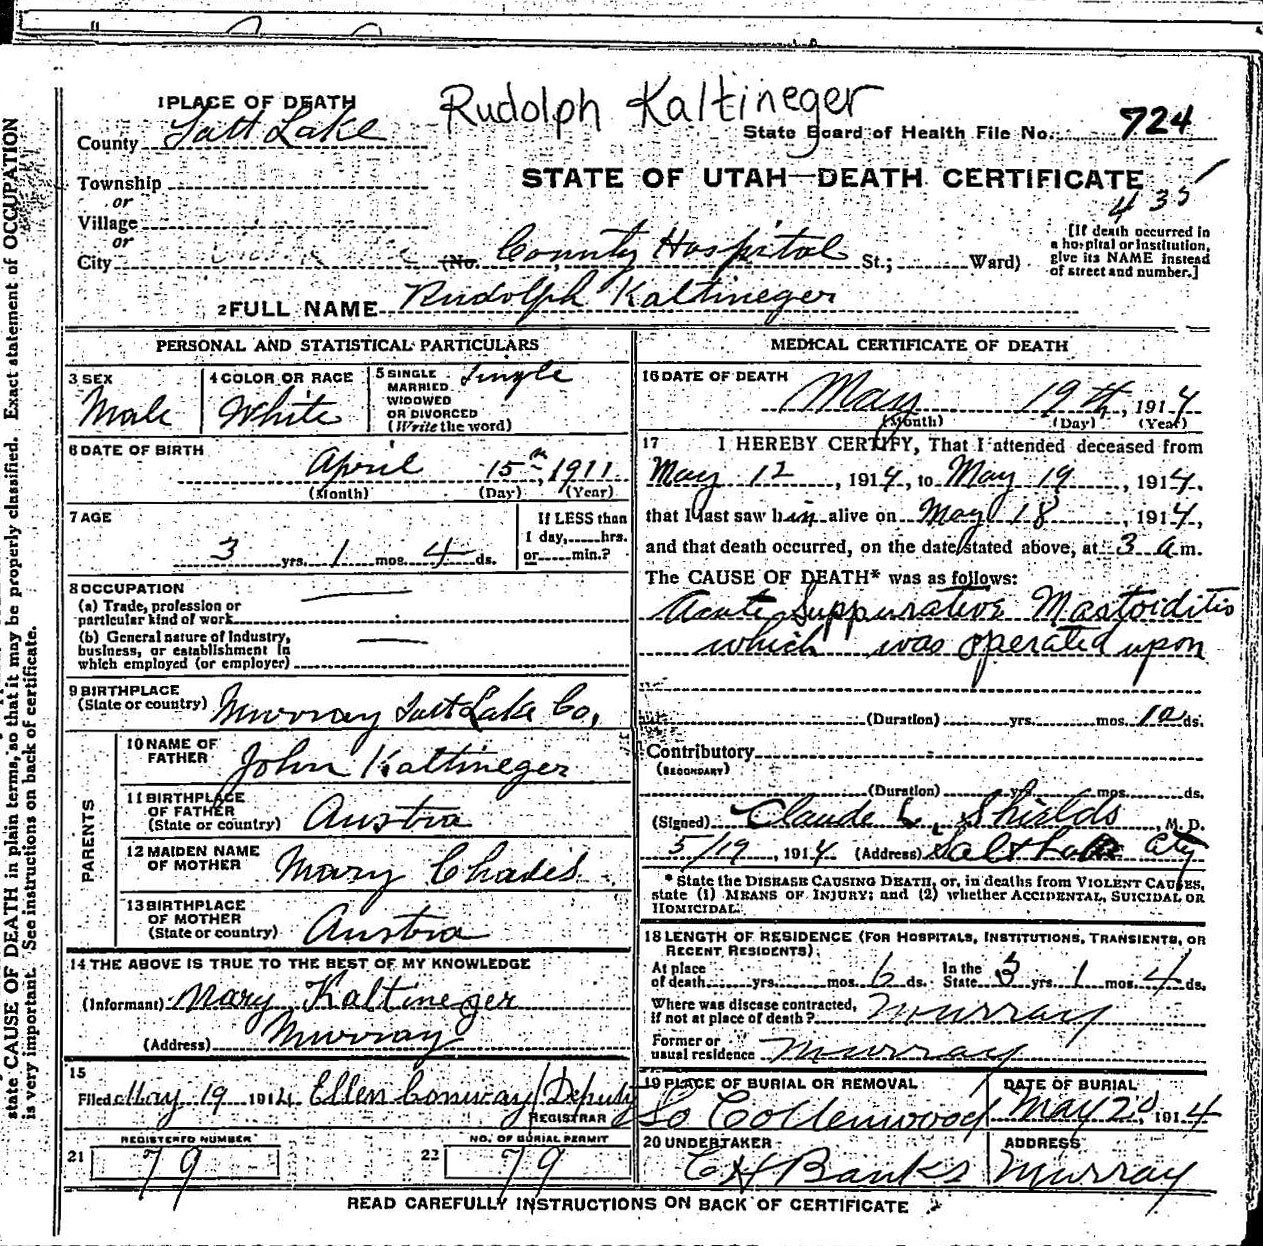 Rudolph Kaltineger
1 PLACE OF DEATH
County Salt Lake
State Board of Health File No. 724
Township
or
Village
or
City
STATE OF UTAH—DEATH CERTIFICATE
435
(No. County Hospital St.; Ward)
[If death occurred in
a hospital or institution,
give its NAME instead
of street and number.]
2 FULL NAME Rudolph Kaltineger
PERSONAL AND STATISTICAL PARTICULARS
3 SEX
Male
4 COLOR OR RACE
White
5 SINGLE
MARRIED
WIDOWED
OR DIVORCED
(Write the word)
Single
6 DATE OF BIRTH
April 15th, 1911
(Month) (Day) (Year)
7 AGE
3 yrs. 1 mos. 4 ds.
If LESS than
1 day, hrs.
or min.?
8 OCCUPATION
(a) Trade, profession or
particular kind of work
(b) General nature of industry,
business, or establishment in
which employed (or employer)
9 BIRTHPLACE
(State or country) Murray Salt Lake Co.
PARENTS
10 NAME OF
FATHER John Kaltineger
11 BIRTHPLACE
OF FATHER
(State or country) Austra
12 MAIDEN NAME
OF MOTHER Mary Chades
13 BIRTHPLACE
OF MOTHER
(State or country) Austra
14 THE ABOVE IS TRUE TO THE BEST OF MY KNOWLEDGE
(Informant) Mary Kaltineger
(Address) Murray
15
Filed May 19 1914 Ellen Conway Deputy
REGISTRAR
REGISTERED NUMBER
21 79
NO. OF BURIAL PERMIT
22 79
MEDICAL CERTIFICATE OF DEATH
16 DATE OF DEATH
May 19th, 1914
(Month) (Day) (Year)
17 I HEREBY CERTIFY, That I attended deceased from
May 12, 1914, to May 19, 1914,
that I last saw him alive on May 18, 1914,
and that death occurred, on the date stated above, at 3 a m.
The CAUSE OF DEATH* was as follows:
Acute Suppurative Mastoiditis
which was operated upon
(Duration) yrs. mos. 10 ds.
Contributory
(SECONDARY)
(Duration) yrs. mos. ds.
(Signed) Claude L. Shields, M. D.
5/19, 1914 (Address) Salt Lake City
* State the DISEASE CAUSING DEATH, or, in deaths from VIOLENT CAUSES,
state (1) MEANS OF INJURY; and (2) whether ACCIDENTAL, SUICIDAL OR
HOMICIDAL.
18 LENGTH OF RESIDENCE (FOR HOSPITALS, INSTITUTIONS, TRANSIENTS, OR
RECENT RESIDENTS):
At place
of death yrs. mos. 6 ds. In the
State 3 yrs. 1 mos. 4 ds.
Where was disease contracted,
if not at place of death? Murray
Former or
usual residence Murray
19 PLACE OF BURIAL OR REMOVAL
So Cottenwood
DATE OF BURIAL
May 20, 1914
20 UNDERTAKER
C H Banks
ADDRESS
Murray
READ CAREFULLY INSTRUCTIONS ON BACK OF CERTIFICATE
state CAUSE OF DEATH in plain terms, so that it may be properly classified. Exact statement of OCCUPATION
is very important. See instructions on back of certificate.